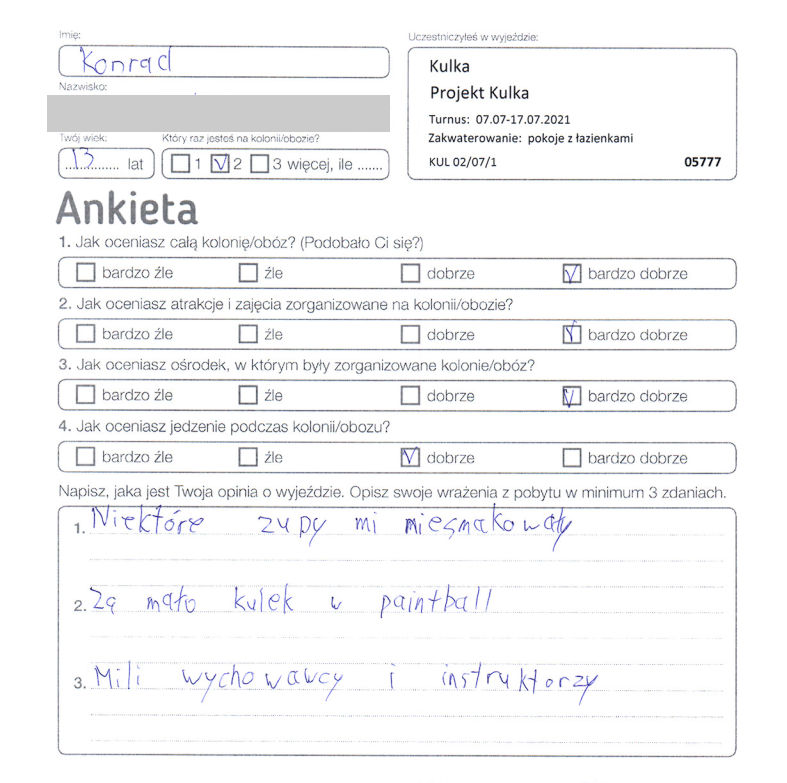 Imię:
Konrad
Nazwisko:
Twój wiek:
Który raz jesteś na kolonii/obozie?
13 lat
1 2 3 więcej, ile .......
Uczestniczyłeś w wyjeździe:
Kulka
Projekt Kulka
Turnus: 07.07-17.07.2021
Zakwaterowanie: pokoje z łazienkami
KUL 02/07/1 05777
Ankieta
1. Jak oceniasz całą kolonię/obóz? (Podobało Ci się?)
bardzo źle źle dobrze bardzo dobrze
2. Jak oceniasz atrakcje i zajęcia zorganizowane na kolonii/obozie?
bardzo źle źle dobrze bardzo dobrze
3. Jak oceniasz ośrodek, w którym były zorganizowane kolonie/obóz?
bardzo źle źle dobrze bardzo dobrze
4. Jak oceniasz jedzenie podczas kolonii/obozu?
bardzo źle źle dobrze bardzo dobrze
Napisz, jaka jest Twoja opinia o wyjeździe. Opisz swoje wrażenia z pobytu w minimum 3 zdaniach.
1. Niektóre zupy mi niesmakowały
2. Za mało kulek w paintball
3. Mili wychowawcy i instruktorzy